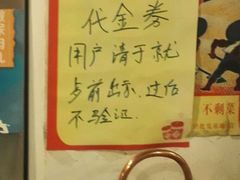 代金券
用户请于就
步前出示.过后
不验证.
不剩菜